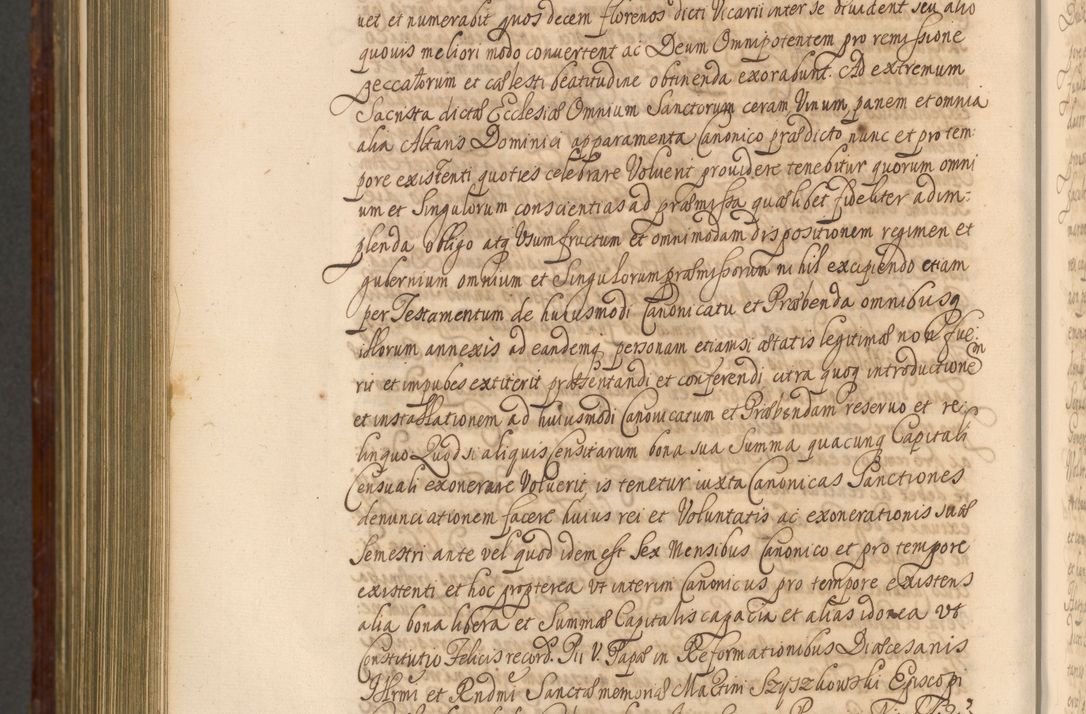 vet et numerabit quos decem florenos dicti Vicarii inter se divident seu alio
quovis meliori modo convertent ac Deum Omnipotentem pro remissione
peccatorum et cælesti beatitudine obtinenda exorabunt. Ad extremum
Sacrista dictæ Ecclesiæ Omnium Sanctorum ceram, Vinum, panem et omnia
alia Altaris Dominici apparamenta Canonico prædicto nunc et pro tem:
pore existenti quoties celebrare Voluerit providere tenebitur quorum omni
um et Singulorum conscientias ad præmissa quælibet fideliter adim:
plenda obligo atq Usumfructum et omnimodam dispositionem regimen et
gubernium omnium et Singulorum præmissorum nihil excipiendo etiam
per Testamentum de huiusmodi Canonicatu et Præbenda omnibusq
illorum annexis ad eandemq personam etiamsi ætatis legitimæ non fue:
rit et impubes extiterit præsentandi et conferendi citra quoq introductionem
et installationem ad huiusmodi Canonicatum et Præbendam reservo et re:
linquo Quod si aliquis Censitarum bona sua Summa quacunq Capitali
Censuali exonerare Voluerit is tenetur iuxta Canonicas Sanctiones
denunciationem facere huius rei et Voluntatis ac exonerationis suæ
Semestri ante vel quod idem est Sex Mensibus Canonico et pro tempore
existenti et hoc propterea ut interim Canonicus pro tempore existens
alia bona libera et Summæ Capitalis capacia et alias idonea ut
Constitutio Felicis record. Pii V. Papæ in Reformationibus Diæcesanis
Illrmi et Rndmi Sanctæ memoriæ Martini Szyszkowski Episcopi